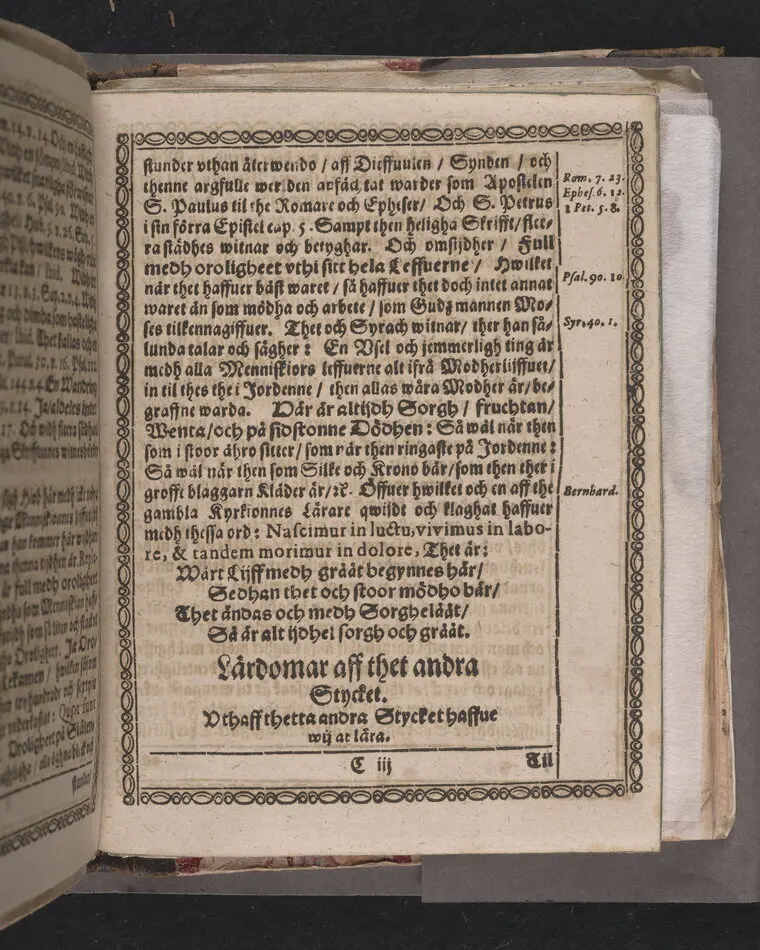 stunder vthan återwendo / aff Dieffuulen / Synden / och
thenne argfulle werlden anfächtat warder som Apostelen
S. Paulus til the Romare och Epheser / Och S. Petrus
i sin förra Epistel cap. 5. Sampt then heligha Skrifft / flee-
ra städhes witnar och betyghar. Och omsijdher / Full
medh oroligheet vthi sitt hela Leffuerne / Hwilket
när thet haffuer bäst waret / så haffuer thet doch intet annat
waret än som mödha och arbete / som Gudz mannen Mo-
ses tilkennagiffuer. Thet och Syrach witnar / ther han så-
lunda talar och sägher : En Vsel och jemmerligh ting är
medh alla Menniskiors leffuerne alt ifrå Modherlijffuet /
in til thes the i Jordenne / then allas wåra Modher är / be-
graffne warda. Där är altijdh Sorgh / fruchtan /
Wenta / och på sidstonne Dödhen : Så wäl när then
som i stoor ähro sitter / som när then ringaste på Jordenne :
Så wäl när then som Silke och Krono bär / som then ther i
grofft blaggarn Kläder är / ꝛc. Öffuer hwilket och en aff the
gambla Kyrkionnes Lärare qwijdt och klaghat haffuer
medh thessa ord : Nascimur in luctu, vivimus in labo-
re, & tandem morimur in dolore, Thet är :
Wårt Lijff medh grååt begynnes här /
Sedhan thet och stoor mödho bär /
Thet ändas och medh Sorgheläät /
Så är alt ijdhel sorgh och grååt.
Lärdomar aff thet andra
Stycket.
Vthaff thetta andra Stycket haffue
wij at lära.
C iij
Til
Rom. 7. 23.
Ephes. 6. 12.
1 Pet. 5. 8.
Psal. 90. 10.
Syr. 40. 1.
Bernhard.